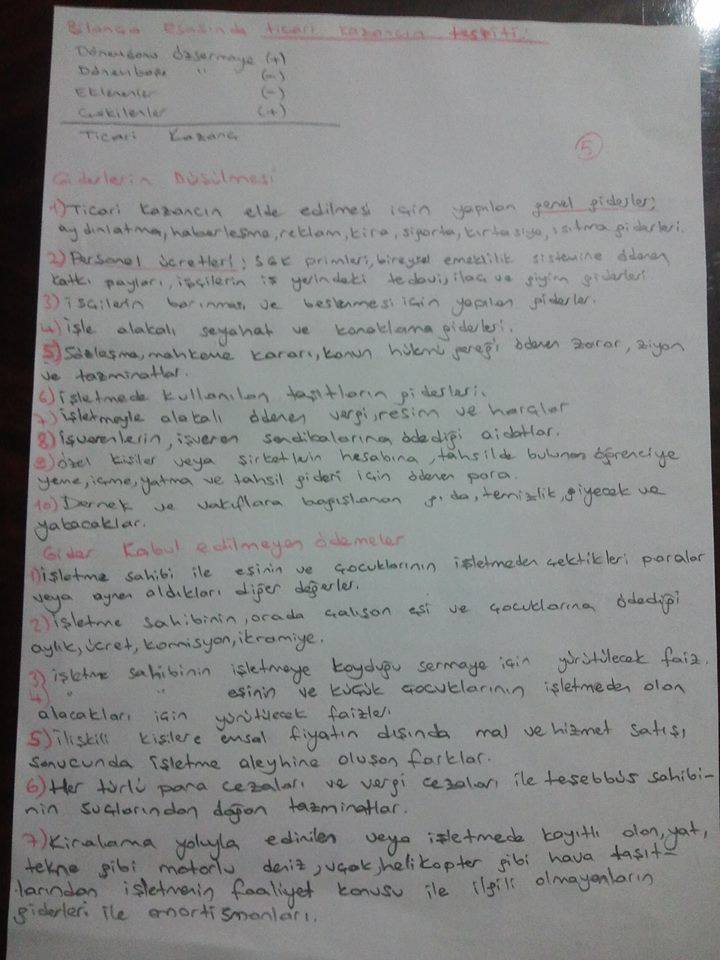 Bilanço esasında ticari kazancın tespiti:
Dönemsonu özsermaye (+)
Dönembaşı " (-)
Eklenenler (-)
Çekilenler (+)
Ticari Kazanç
5
Giderlerin Düşülmesi
1) Ticari kazancın elde edilmesi için yapılan genel giderler;
aydınlatma, haberleşme, reklam, kira, sigorta, kırtasiye, ısıtma giderleri.
2) Personel ücretleri; SGK primleri, bireysel emeklilik sistemine ödenen
katkı payları, işçilerin iş yerindeki tedavi, ilaç ve giyim giderleri
3) işçilerin barınması ve beslenmesi için yapılan giderler.
4) işle alakalı seyahat ve konaklama giderleri.
5) Sözleşme, mahkeme kararı, kanun hükmü gereği ödenen zarar, ziyan
ve tazminatlar.
6) işletmede kullanılan taşıtların giderleri.
7) işletmeyle alakalı ödenen vergi, resim ve harçlar
8) işverenlerin, işveren sendikalarına ödediği aidatlar.
9) özel kişiler veya şirketlerin hesabına, tahsilde bulunan öğrenciye
yeme, içme, yatma ve tahsil gideri için ödenen para.
10) Dernek ve vakıflara bağışlanan gıda, temizlik, giyecek ve
yabacaklar.
Gider Kabul edilmeyen ödemeler
1) işletme sahibi ile eşinin ve çocuklarının işletmeden çektikleri paralar
veya aynen aldıkları diğer değerler.
2) işletme sahibinin, orada çalışan eşi ve çocuklarına ödediği
aylık, ücret, komisyon, ikramiye.
3) işletme sahibinin işletmeye koyduğu sermaye için yürütülecek faiz.
4) " " eşinin ve küçük çocuklarının işletmeden olan
alacakları için yürütülecek faizler
5) ilişkili kişilere emsal fiyatın dışında mal ve hizmet satışı,
sonucunda işletme aleyhine oluşan farklar.
6) Her türlü para cezaları ve vergi cezaları ile teşebbüs sahibi-
nin suçlarından doğan tazminatlar.
7) Kiralama yoluyla edinilen veya işletmede kayıtlı olan, yat,
tekne gibi motorlu deniz, uçak, helikopter gibi hava taşıt-
larından işletmenin faaliyet konusu ile ilgili olmayanların
giderleri ile amortismanları.